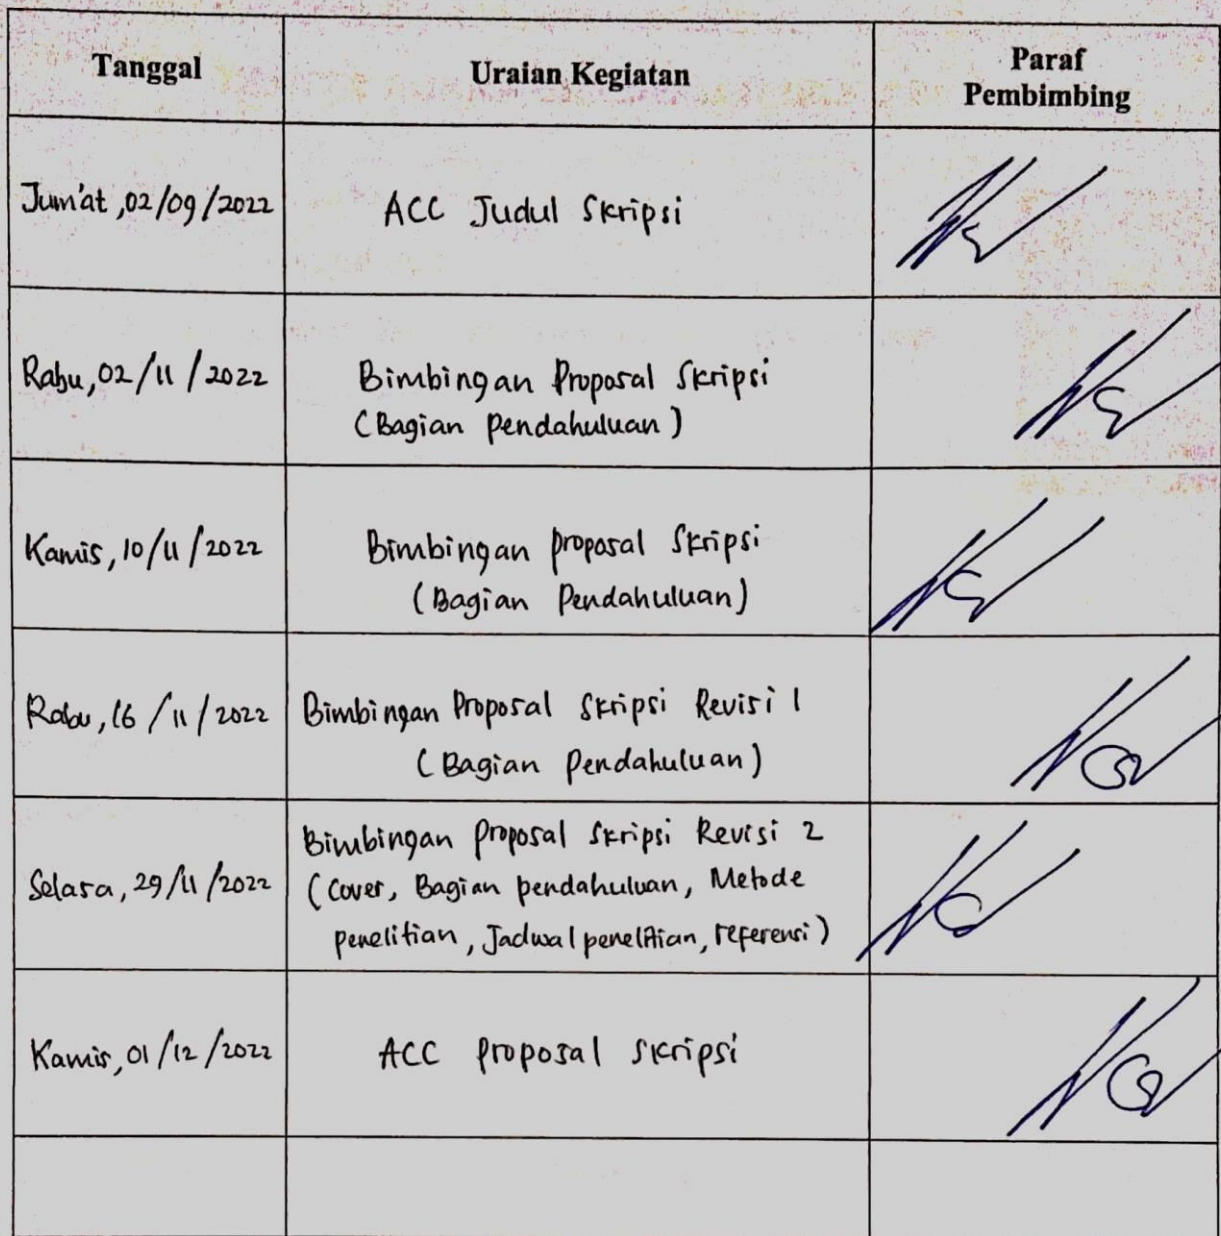 Tanggal
Uraian Kegiatan
Paraf
Pembimbing
Jum'at, 02/09/2022
ACC Judul Skripsi
Rabu, 02/11/2022
Bimbingan Proposal Skripsi
(Bagian Pendahuluan)
Kamis, 10/11/2022
Bimbingan proposal Skripsi
(Bagian Pendahuluan)
Rabu, 16/11/2022
Bimbingan Proposal Skripsi Revisi 1
(Bagian Pendahuluan)
Selasa, 29/11/2022
Bimbingan proposal Skripsi Revisi 2
(Cover, Bagian pendahuluan, Metode
penelitian, Jadwal penelitian, referensi)
Kamis, 01/12/2022
ACC proposal skripsi